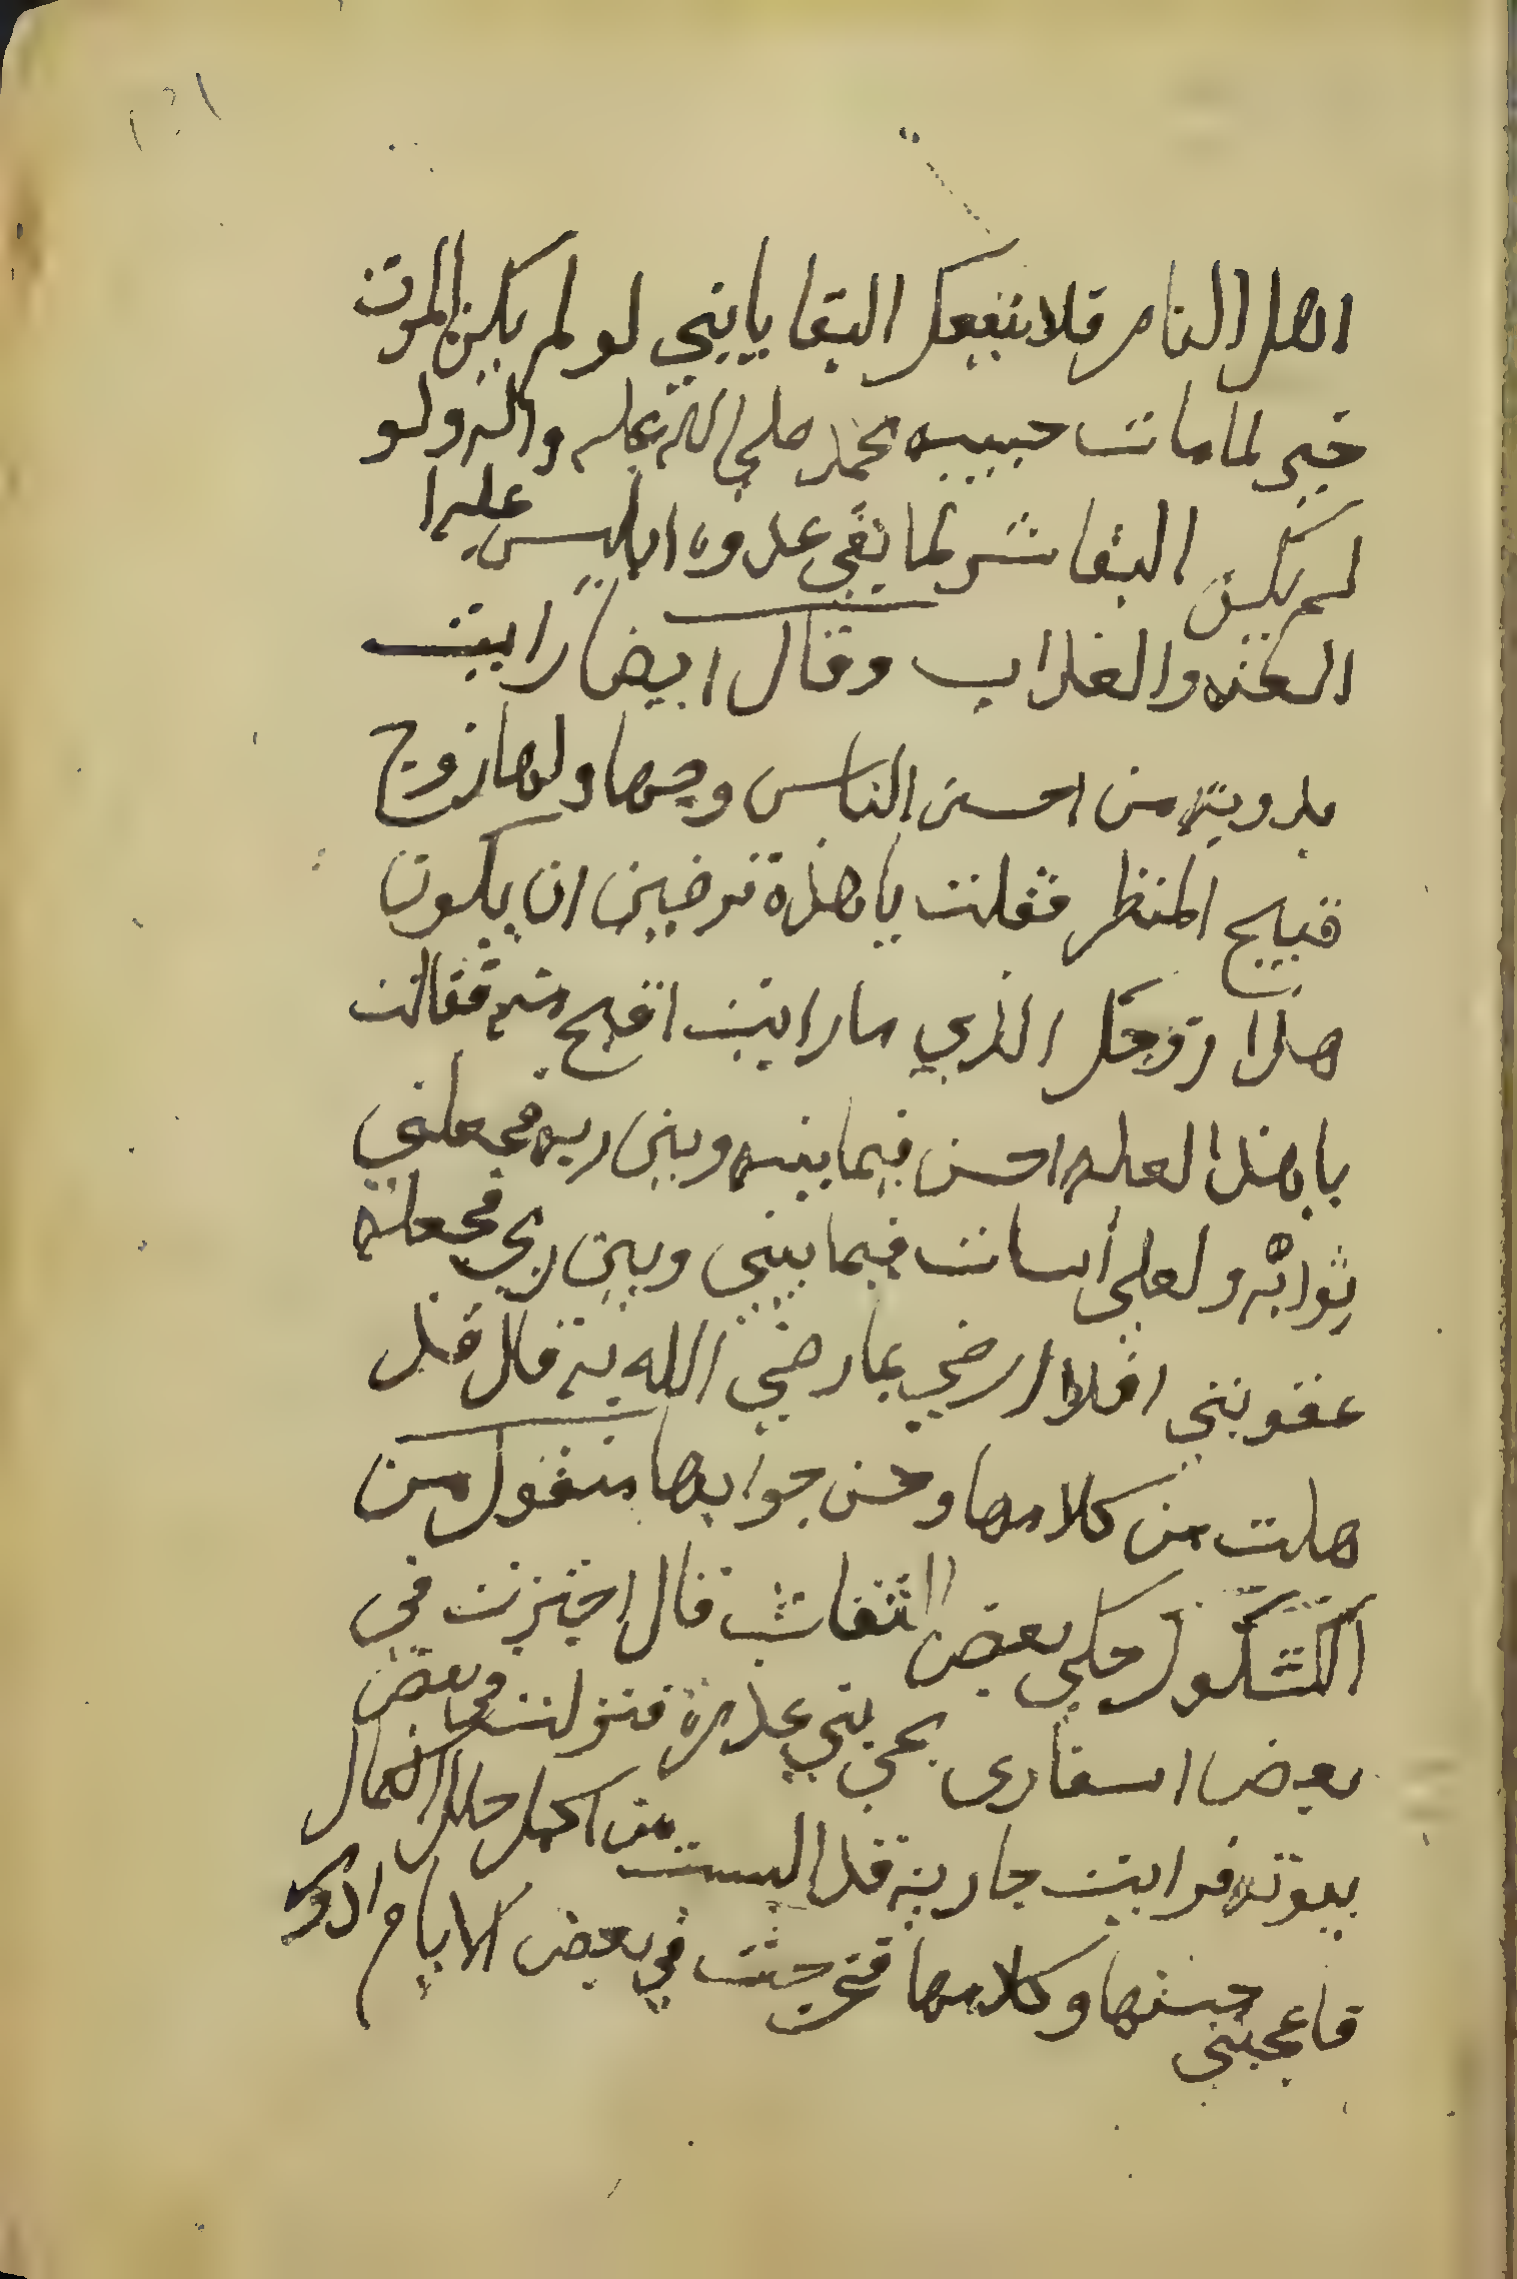 ١٣١
اهل النار فلا ينفعك البقا يابني لو لم يكن الموت
خير لما مات حبيبه محمد صلى الله عليه واله ولو
لم يكن البقا شر لما بقي عدوه ابليس عليه
العنه والعذاب وقال ايضا رايت
بدويه من احسن الناس وجها ولها زوج
قبيح المنظر فقلت يا هذة ترضين ان يكون
هذا زوجك الذي ما رايت اقبح منه فقالت
يا هذا لعله احسن فيما بينه وبين ربه فجعلني
ثوابه ولعلي أسات فيما بيني وبين ربي فجعله
عقوبتي افلا ارضي بما رضي الله به قال قد
هلت من كلامها وحسن جوابها منقول من
الكشكول حكى بعض الثقات قال اجتزت في
بعض اسفاري بحي بني عذرة فنزلت في بعض
بيوته فرايت جارية قد البست من اكمل حلل الجمال
فاعجبني حسنها وكلامها فخرجت في بعض الايام ادور